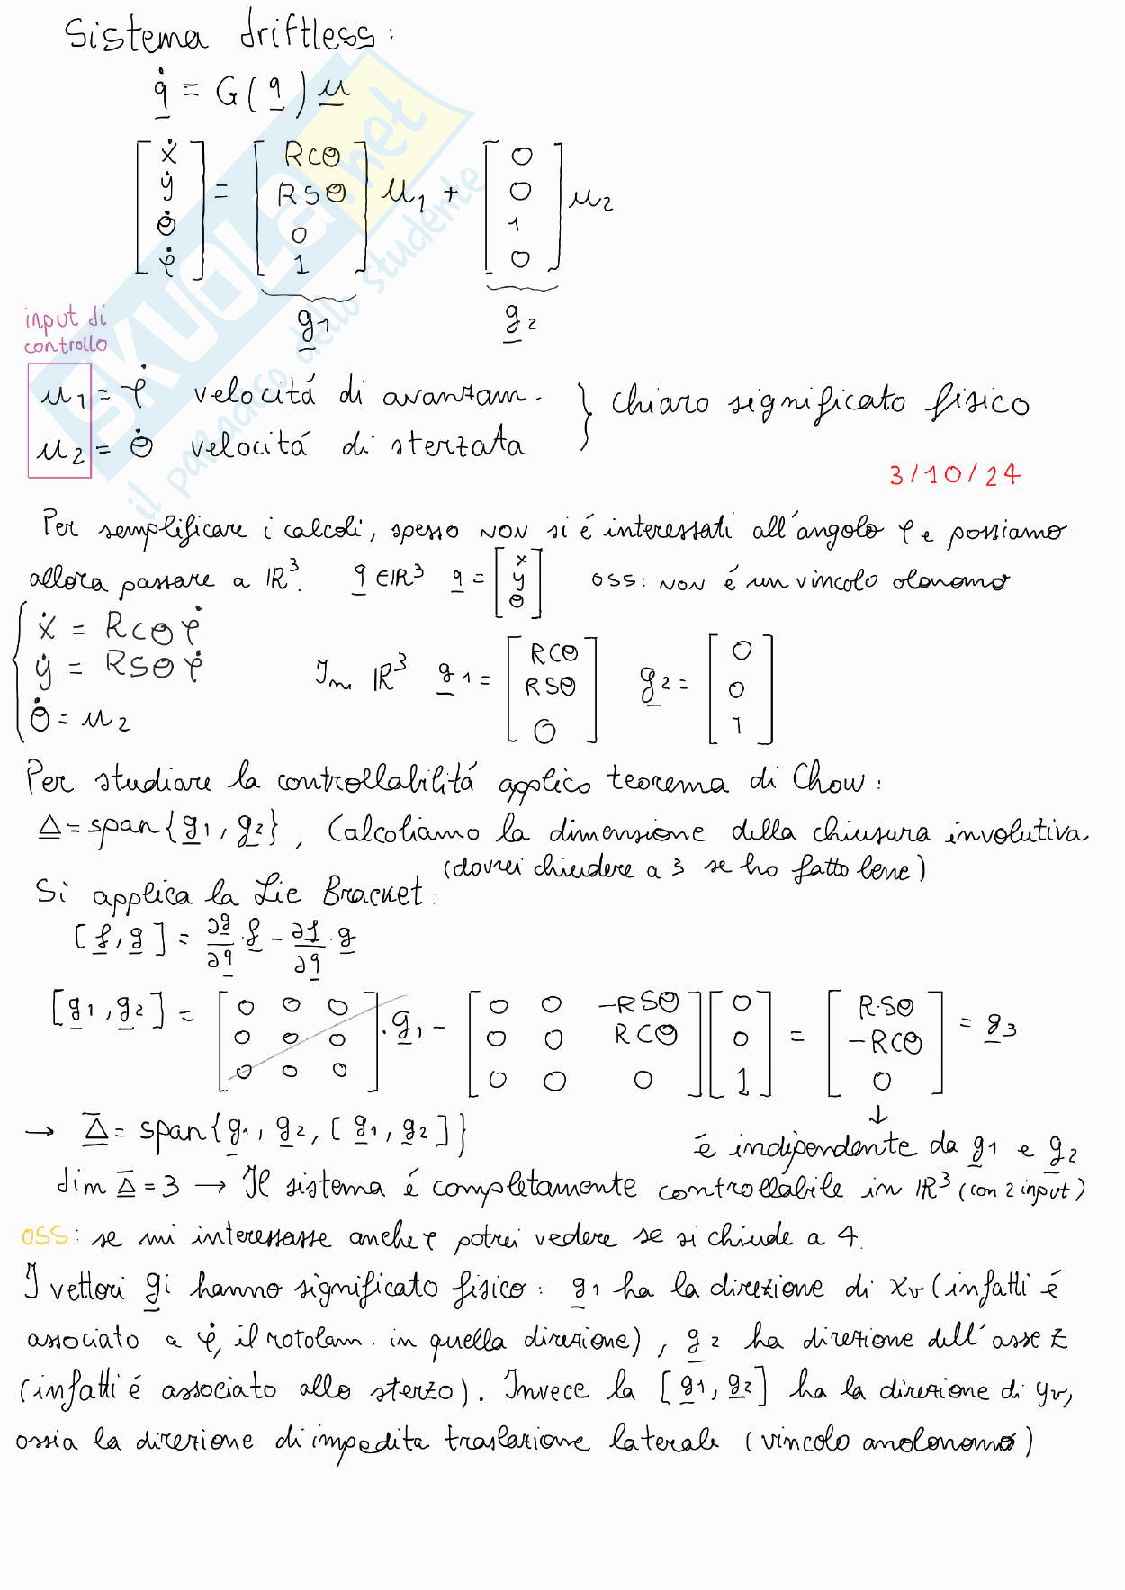 Sistema driftless:
q̇ = G(q) u
[ẋ ẏ θ̇ φ̇] = [Rcθ Rsθ 0 1] u1 + [0 0 1 0] u2
g1 g2
input di
controllo
u1 = φ̇ velocitá di avanzam.
u2 = θ̇ velocitá di sterzata
} chiaro significato fisico
3/10/24
Per semplificare i calcoli, spesso NON si é interessati all'angolo φ e possiamo
allora passare a IR³. q ∈ IR³ q = [x y θ] OSS: NON é un vincolo olonomo
ẋ = Rcθ φ̇
ẏ = Rsθ φ̇
θ̇ = u2
In IR³ g1 = [Rcθ Rsθ 0] g2 = [0 0 1]
Per studiare la controllabilitá applico teorema di Chow:
Δ = span{g1, g2}, Calcoliamo la dimensione della chiusura involutiva.
(dovrei chiudere a 3 se ho fatto bene)
Si applica la Lie Bracket:
[f, g] = ∂g/∂q · f - ∂f/∂q · g
[g1, g2] = [0 0 0 0 0 0 0 0 0] · g1 - [0 0 -Rsθ 0 0 Rcθ 0 0 0] [0 0 1] = [R·sθ -Rcθ 0] = g3
→ Δ̄ = span{g1, g2, [g1, g2]}
↓
é indipendente da g1 e g2
dim Δ̄ = 3 → Il sistema é completamente controllabile in IR³ (con 2 input)
OSS: se mi interessasse anche φ potrei vedere se si chiude a 4.
I vettori gi hanno significato fisico: g1 ha la direzione di xv (infatti é
associato a φ̇, il rotolam. in quella direzione), g2 ha direzione dell'asse z
(infatti é associato allo sterzo). Invece la [g1, g2] ha la direzione di yv,
ossia la direzione di impedita traslazione laterale (vincolo anolonomo)
SKUOLA.net
il paradiso dello studente